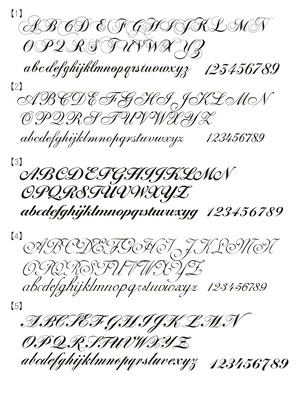 【1】
A B C D E F G H I J K L M N
O P Q R S T U V W X Y Z
a b c d e f g h i j k l m n o p q r s t u v w x y z 1 2 3 4 5 6 7 8 9
【2】
A B C D E F G H I J K L M N
O P Q R S T U V W X Y Z
a b c d e f g h i j k l m n o p q r s t u v w x y z 1 2 3 4 5 6 7 8 9
【3】
A B C D E F G H I J K L M N
O P Q R S T U V W X Y Z
a b c d e f g h i j k l m n o p q r s t u v w x y z 1 2 3 4 5 6 7 8 9
【4】
A B C D E F G H I J K L M N
O P Q R S T U V W X Y Z
a b c d e f g h i j k l m n o p q r s t u v w x y z 1 2 3 4 5 6 7 8 9
【5】
A B C D E F G H I J K L M N
O P Q R S T U V W X Y Z
a b c d e f g h i j k l m n o p q r s t u v w x y z 1 2 3 4 5 6 7 8 9